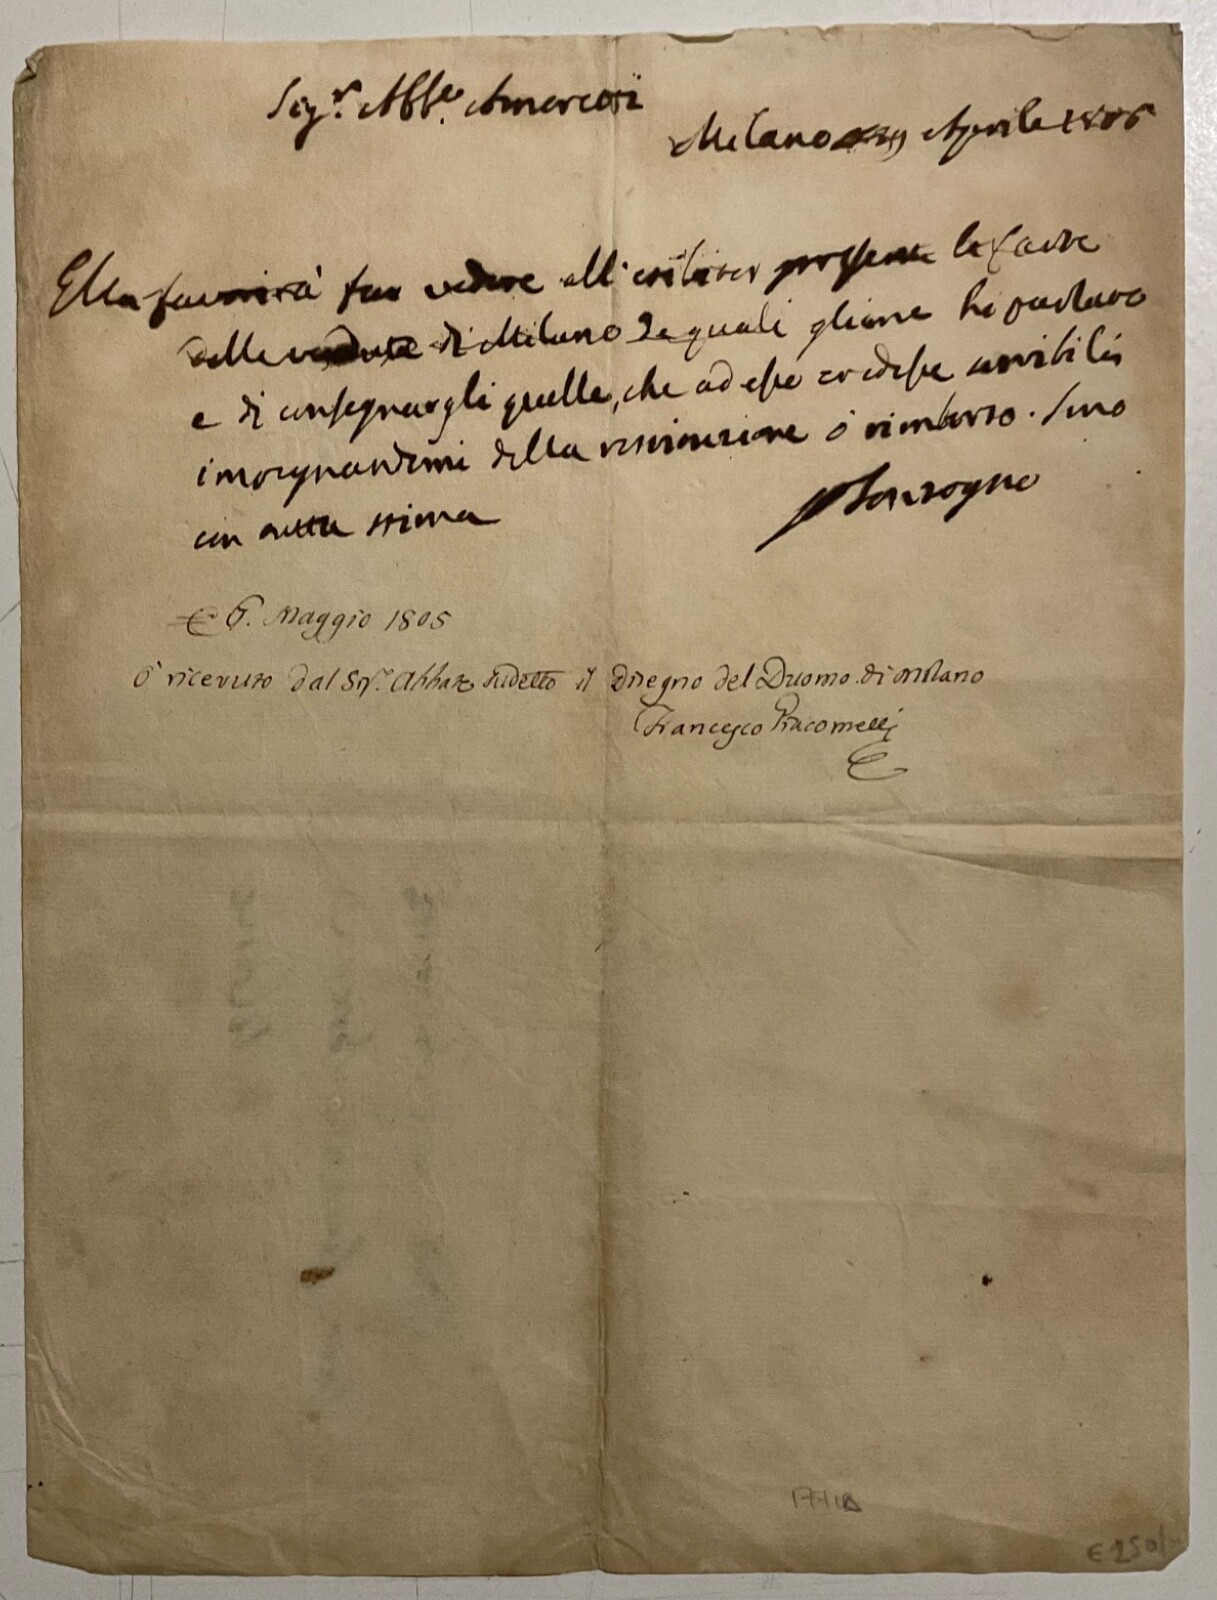 Sig.r Abb.e Amoretti
Milano 29 Aprile 1805
Ella favorirà far vedere all'esibitor presente le carte
delle vedute di Milano de quali gliene ho parlato
e di consegnargli quelle, che ad esso credesse servibili
impegnandomi della restituzione ò rimborso. Sono
con tutta stima
Sonzogno
6. Maggio 1805
ò ricevuto dal Sig.r Abbate sudetto il Disegno del Duomo di Milano
Francesco Giacomelli
€ 250/